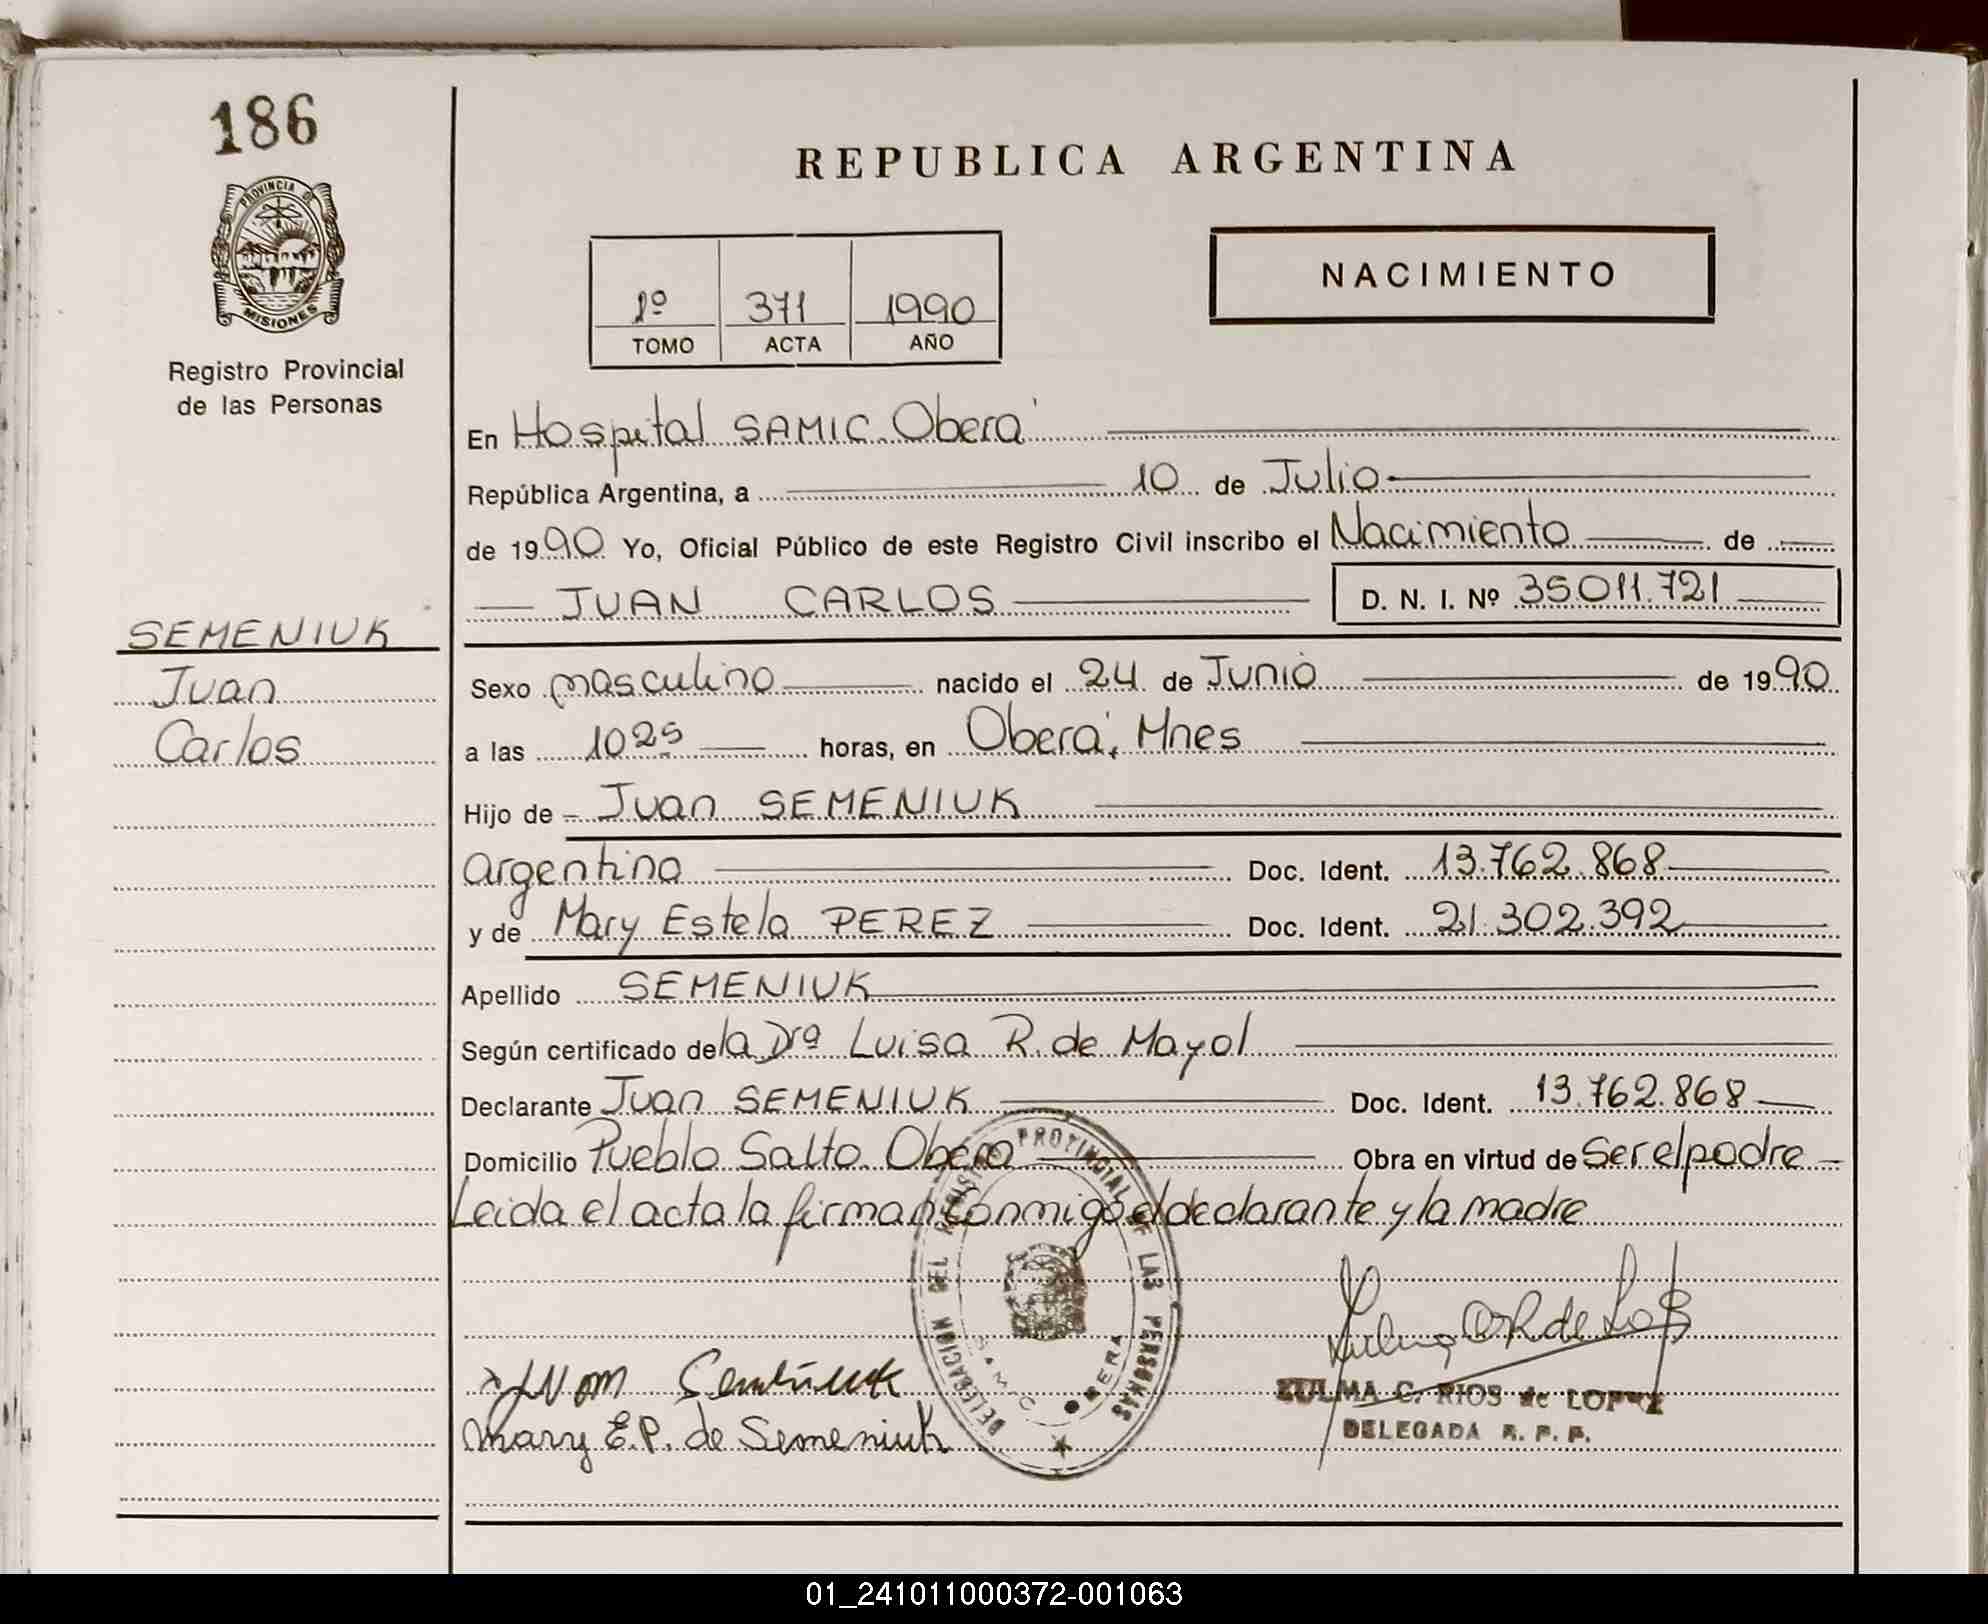 186
PROVINCIA DE
MISIONES
Registro Provincial
de las Personas
SEMENIUK
Juan
Carlos
REPUBLICA ARGENTINA
1º 371 1990
TOMO ACTA AÑO
NACIMIENTO
En Hospital SAMIC Oberá
República Argentina, a 10 de Julio
de 1990 Yo, Oficial Público de este Registro Civil inscribo el Nacimiento de
JUAN CARLOS D. N. I. Nº 35011.721
Sexo masculino nacido el 24 de Junio de 1990
a las 1025 horas, en Oberá, Mnes
Hijo de Juan SEMENIUK
argentino Doc. Ident. 13.762.868
y de Mary Estela PEREZ Doc. Ident. 21.302.392
Apellido SEMENIUK
Según certificado de la Drª Luisa R. de Mayol
Declarante Juan SEMENIUK Doc. Ident. 13.762.868
Domicilio Pueblo Salto Obera Obra en virtud de ser el padre
Leida el acta la firman conmigo el declarante y la madre
DELEGACION DEL REGISTRO PROVINCIAL DE LAS PERSONAS
S.A.M.I.C. OBERA
Juan Semeniuk
Mary E.P. de Semeniuk
ZULMA C. RIOS de LOPEZ
DELEGADA R. P. P.
01_241011000372-001063